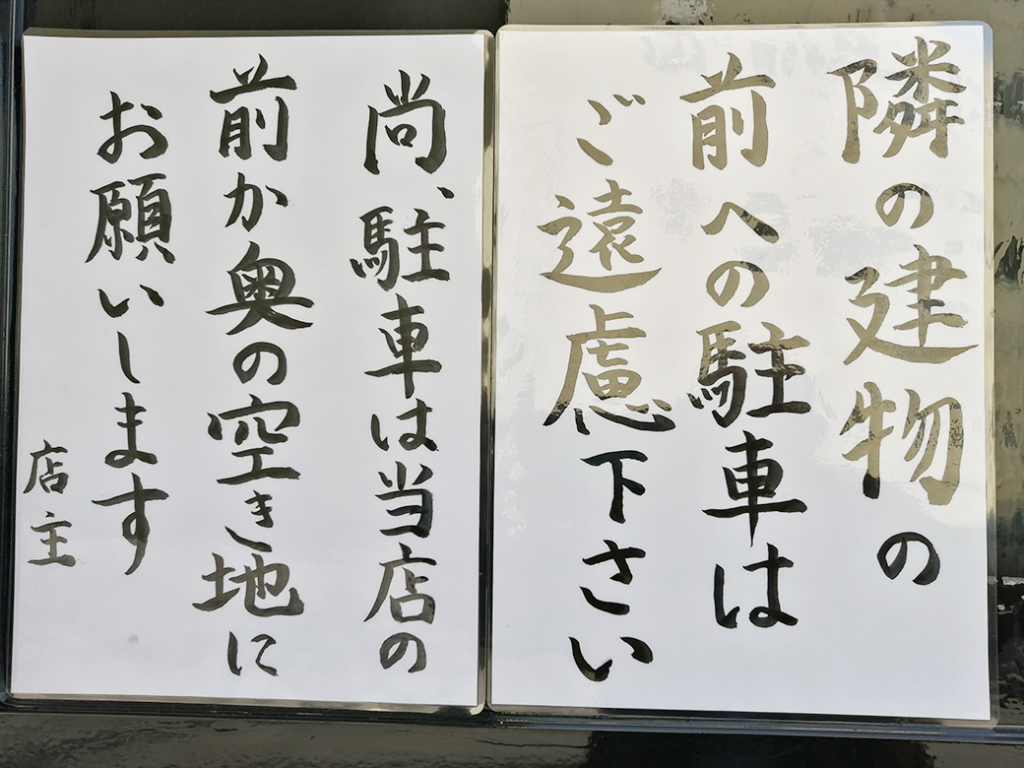 隣の建物の
前への駐車は
ご遠慮下さい
尚、駐車は当店の
前か奥の空き地に
お願いします
店主